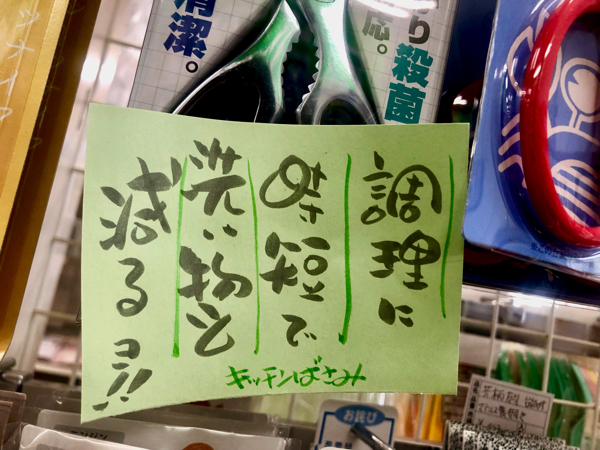 清潔。
り殺菌
応。
調理に
時短で
洗い物も
減るヨ!!
キッチンばさみ
お詫び